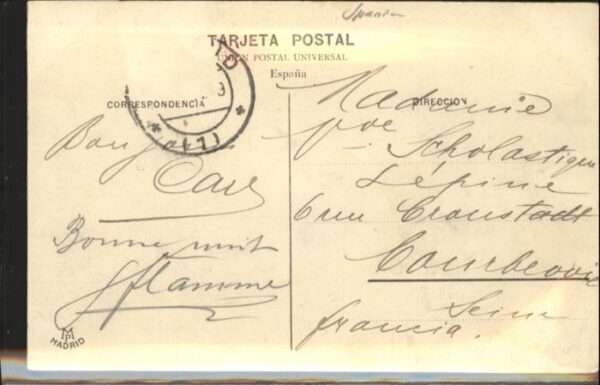 Spanien
TARJETA POSTAL
UNION POSTAL UNIVERSAL
España
CORRESPONDENCIA
DIRECCION
Bonjour
Bonne nuit
Flamme
MADRID
Madame
Scholastique
Lépine
6 rue Cronstadt
Courbevoie
Seine
francia.